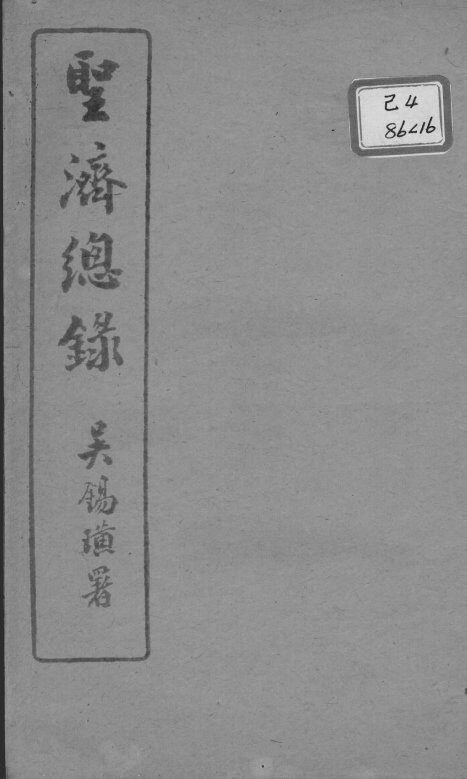 聖濟總錄
吴錫璜署
己4
91798